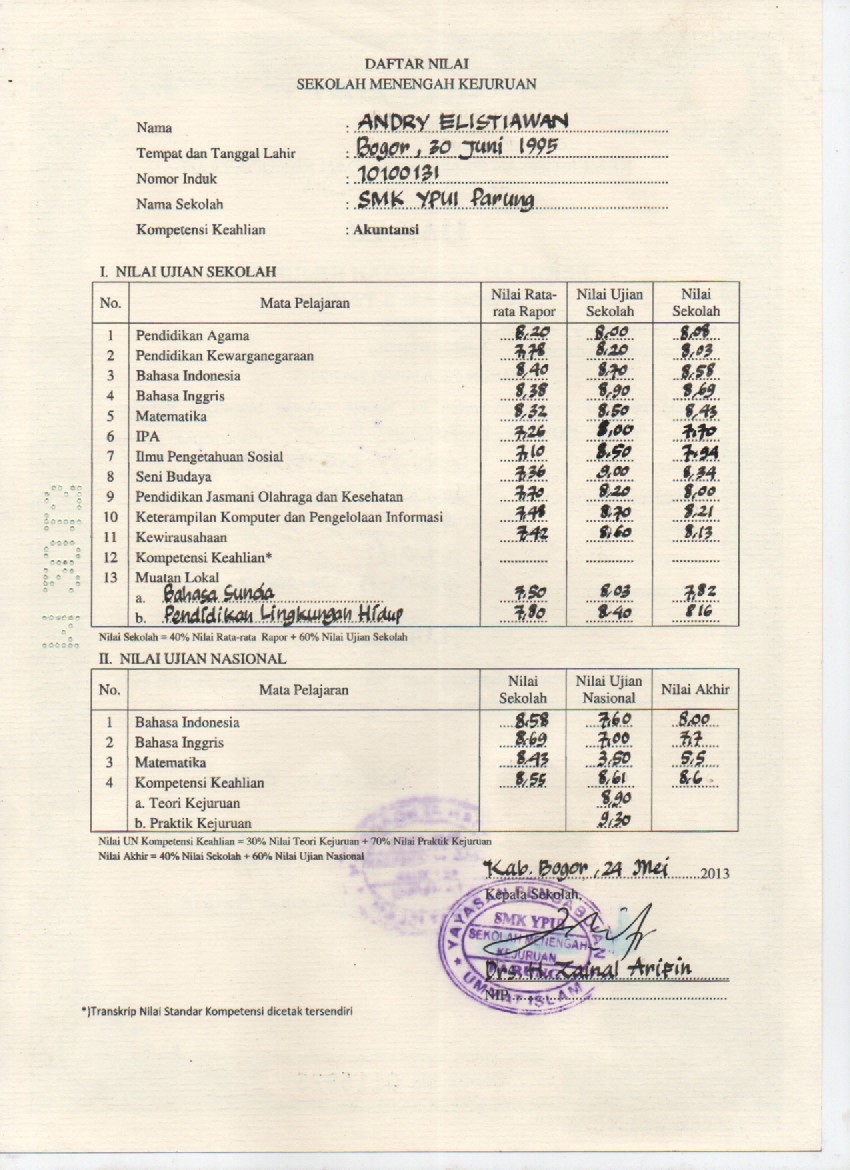 DAFTAR NILAI
SEKOLAH MENENGAH KEJURUAN
Nama : ANDRY ELISTIAWAN
Tempat dan Tanggal Lahir : Bogor, 30 Juni 1995
Nomor Induk : 10100131
Nama Sekolah : SMK YPUI Parung
Kompetensi Keahlian : Akuntansi
I. NILAI UJIAN SEKOLAH
No. Mata Pelajaran Nilai Rata-rata Rapor Nilai Ujian Sekolah Nilai Sekolah
1 Pendidikan Agama 8,20 8,00 8,08
2 Pendidikan Kewarganegaraan 7,78 8,20 8,03
3 Bahasa Indonesia 8,40 8,70 8,58
4 Bahasa Inggris 8,38 8,90 8,69
5 Matematika 8,32 8,50 8,43
6 IPA 7,26 8,00 7,70
7 Ilmu Pengetahuan Sosial 7,10 8,50 7,94
8 Seni Budaya 7,36 9,00 8,34
9 Pendidikan Jasmani Olahraga dan Kesehatan 7,70 8,20 8,00
10 Keterampilan Komputer dan Pengelolaan Informasi 7,48 8,70 8,21
11 Kewirausahaan 7,42 8,60 8,13
12 Kompetensi Keahlian*
13 Muatan Lokal
a. Bahasa Sunda 7,50 8,03 7,82
b. Pendidikan Lingkungan Hidup 7,80 8.40 8 16
Nilai Sekolah = 40% Nilai Rata-rata Rapor + 60% Nilai Ujian Sekolah
II. NILAI UJIAN NASIONAL
No. Mata Pelajaran Nilai Sekolah Nilai Ujian Nasional Nilai Akhir
1 Bahasa Indonesia 8,58 7,60 8,00
2 Bahasa Inggris 8.69 7,00 7,7
3 Matematika 8.43 3,50 5,5
4 Kompetensi Keahlian 8,55 8,61 8,6
a. Teori Kejuruan 8,90
b. Praktik Kejuruan 9,30
Nilai UN Kompetensi Keahlian = 30% Nilai Teori Kejuruan + 70% Nilai Praktik Kejuruan
Nilai Akhir = 40% Nilai Sekolah + 60% Nilai Ujian Nasional
Kab. Bogor, 24 Mei 2013
Kepala Sekolah,
SMK YPUI
SEKOLAH MENENGAH
KEJURUAN
UMMAT ISLAM
Drs. H. Zainal Aripin
NIP.
*)Transkrip Nilai Standar Kompetensi dicetak tersendiri